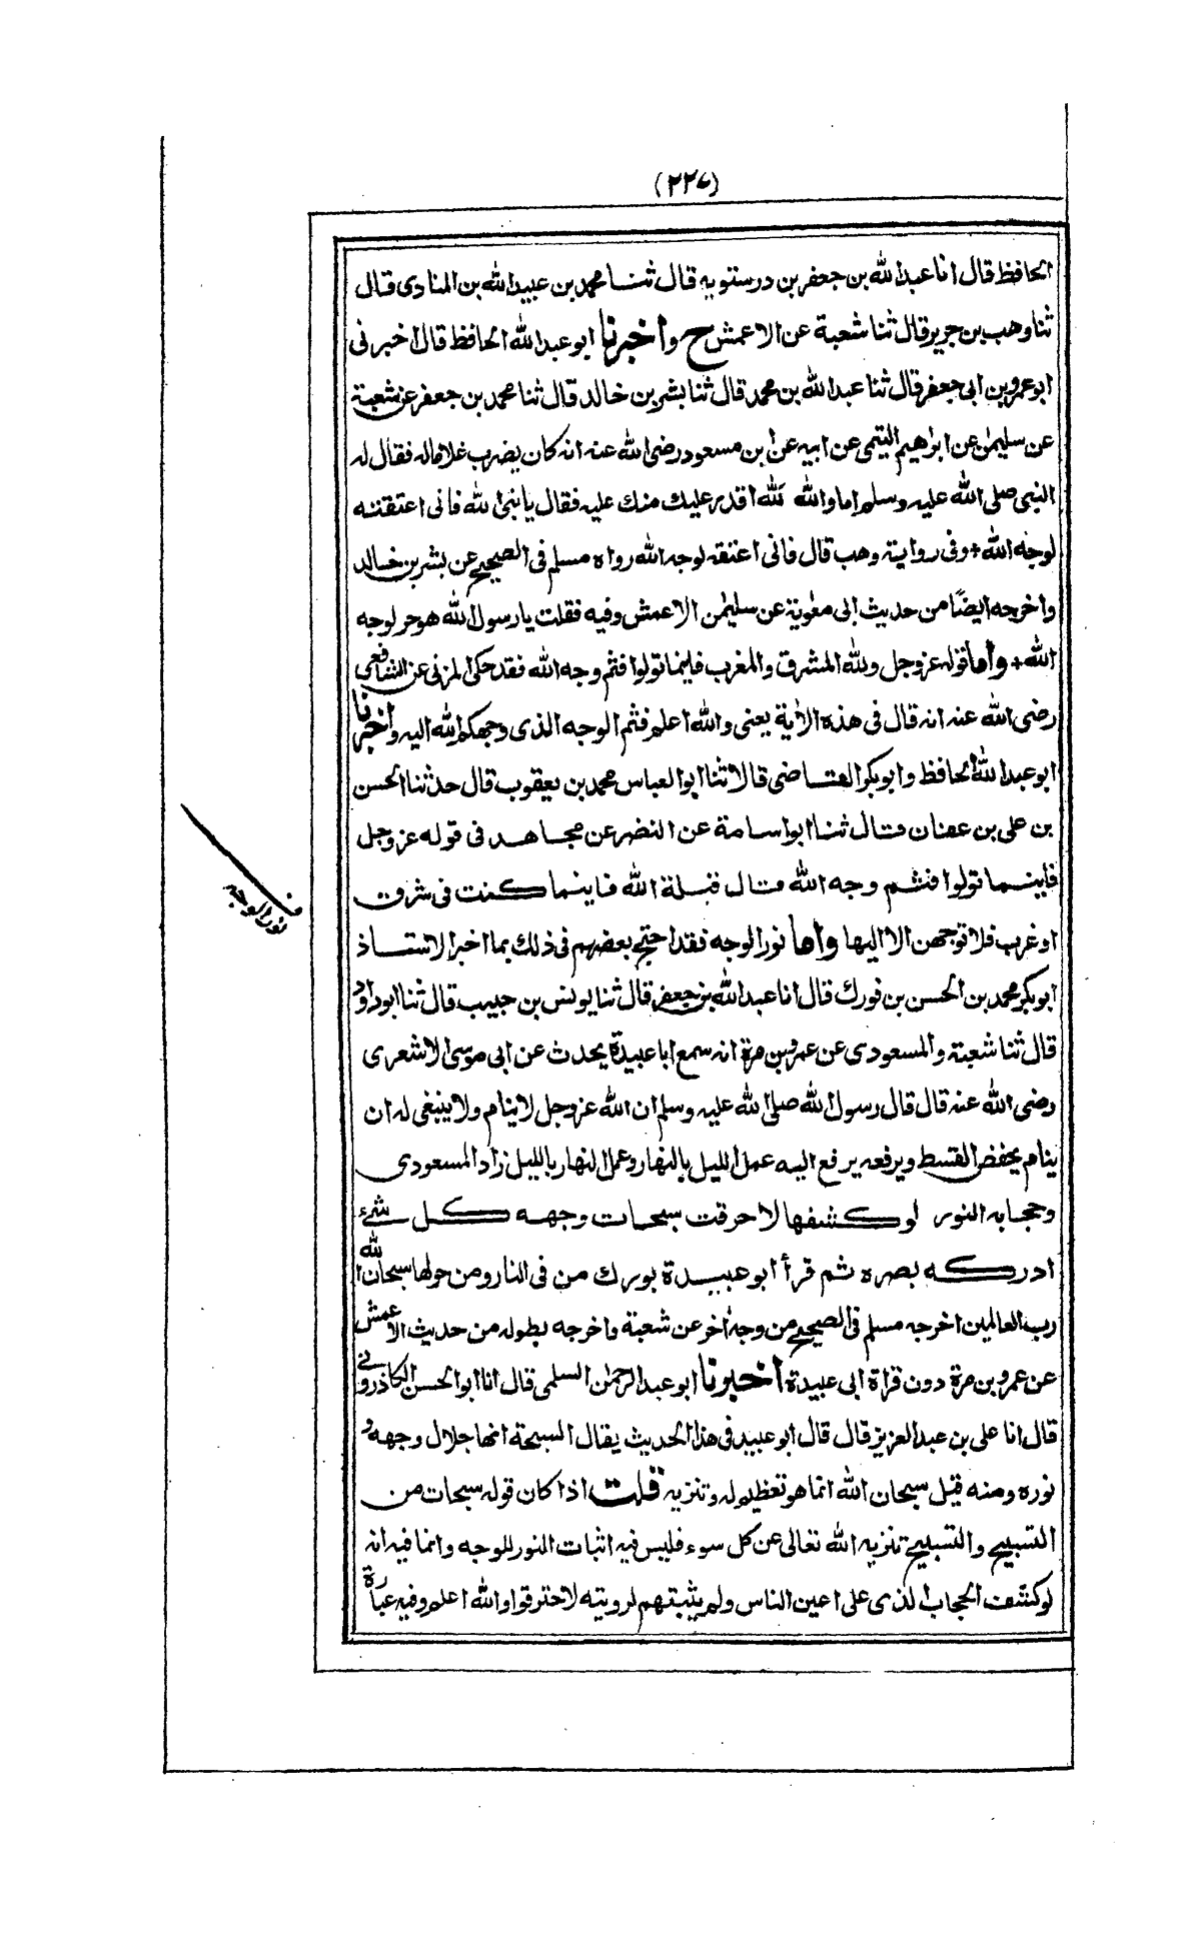 (٢٢٧)
الحافظ قال انا عبدالله بن جعفر بن درستويه قال ثنا محمد بن عبيدالله بن المنادى قال
ثنا وهب بن جرير قال ثنا شعبة عن الاعمش ح واخبرنا ابو عبدالله الحافظ قال اخبرنى
ابو عمرو بن ابى جعفر قال ثنا عبدالله بن محمد قال ثنا بشر بن خالد قال ثنا محمد بن جعفر عن شعبة
عن سليمٰن عن ابرٰهيم التيمى عن ابيه عن ابن مسعود رضى الله عنه انه كان يضرب غلاما له فقال له
النبى صلى الله عليه وسلم اما والله لله اقدر عليك منك عليه فقال يا نبى الله فانى اعتقته
لوجه الله + وفى رواية وهب قال فانى اعتقه لوجه الله رواه مسلم فى الصحيح عن بشر بن خالد
واخرجه ايضًا من حديث ابى معٰوية عن سليمٰن الاعمش وفيه فقلت يا رسول الله هو حر لوجه
الله + واما قوله عز وجل ولله المشرق والمغرب فاينما تولوا فثم وجه الله فقد حكى المزنى عن الشافعى
رضى الله عنه انه قال فى هذه الاٰية يعنى والله اعلم فثم الوجه الذى وجهكم الله اليه واخبرنا
ابو عبدالله الحافظ وابوبكر القاضى قالا ثنا ابوالعباس محمد بن يعقوب قال حدثنا الحسن
بن على بن عفان قال ثنا ابواسامة عن النضر عن مجاهد فى قوله عز وجل
فاينما تولوا فثم وجه الله قال قبلة الله فاينما كنت فى شرق
او غرب فلا توجهن الا اليها واما نور الوجه فقد احتج بعضهم فى ذلك بما اخبر الاستاذ
ابوبكر محمد بن الحسن بن فورك قال انا عبدالله بن جعفر قال ثنا يونس بن حبيب قال ثنا ابوداود
قال ثنا شعبة والمسعودى عن عمرو بن مرة انه سمع ابا عبيدة يحدث عن ابى موسى الاشعرى
رضى الله عنه قال قال رسول الله صلى الله عليه وسلم ان الله عز وجل لا ينام ولا ينبغى له ان
ينام يخفض القسط ويرفعه يرفع اليه عمل الليل بالنهار وعمل النهار بالليل زاد المسعودى
وحجابه النور لو كشفها لاحرقت سبحات وجهه كل شىء
ادركه بصره ثم قرأ ابو عبيدة بورك من فى النار ومن حولها سبحان الله
رب العالمين اخرجه مسلم فى الصحيح من وجه اٰخر عن شعبة واخرجه بطوله من حديث الاعمش
عن عمرو بن مرة دون قراة ابى عبيدة اخبرنا ابو عبدالرحمٰن السلمى قال انا ابوالحسن الكاذرونى
قال انا على بن عبدالعزيز قال قال ابو عبيد فى هذا الحديث يقال السبحة انها جلال وجهه و
نوره ومنه قيل سبحان الله انما هو تعظيم له وتنزيه قلت اذا كان قوله سبحات من
التسبيح والتسبيح تنزيه الله تعالى عن كل سوء فليس فيه اثبات النور للوجه وانما فيه انه
لو كشف الحجاب الذى على اعين الناس ولم يثبتهم لرويته لاحترقوا والله اعلم وفيه عبارة
ف نور الوجه